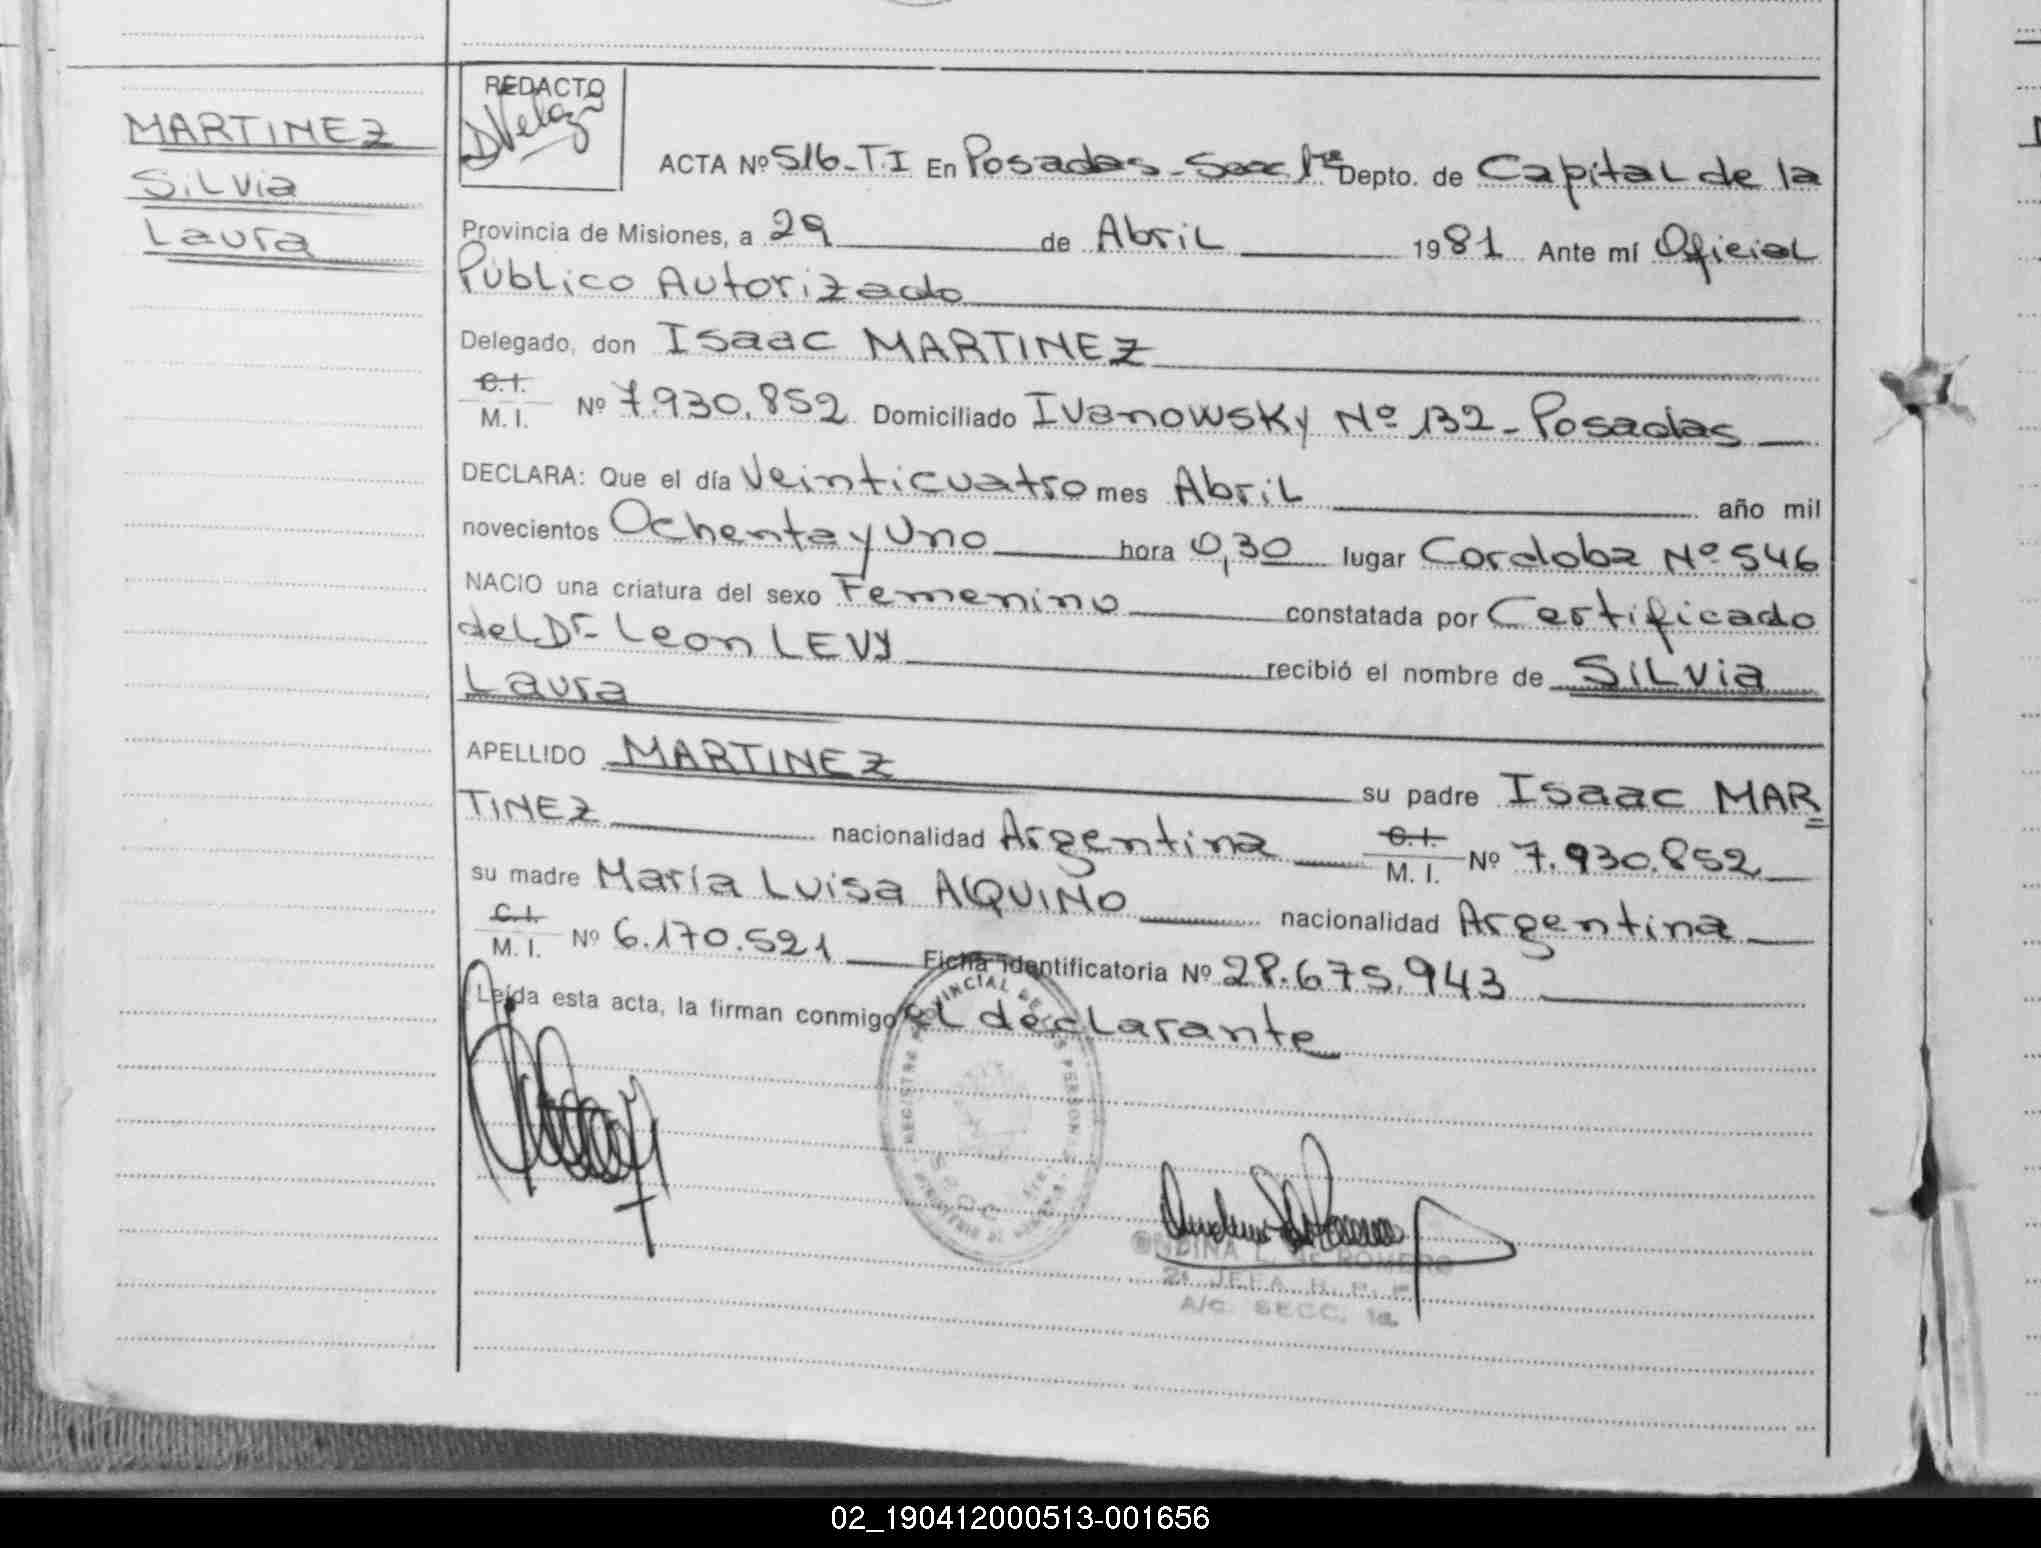 MARTINEZ
Silvia
Laura
REDACTO
DVelaz
ACTA Nº 516-T.I En Posadas - Secc 1ra Depto. de Capital de la
Provincia de Misiones, a 29 de Abril 1981 Ante mí Oficial
Público Autorizado
Delegado, don Isaac MARTINEZ
C.I.
M. I. Nº 7.930.852 Domiciliado Ivanowsky Nº 132 - Posadas
DECLARA: Que el día Veinticuatro mes Abril año mil
novecientos Ochenta y Uno hora 0,30 lugar Cordoba Nº 546
NACIO una criatura del sexo Femenino constatada por Certificado
del Dr- Leon LEVY recibió el nombre de Silvia
Laura
APELLIDO MARTINEZ su padre Isaac MAR
TINEZ nacionalidad Argentina C.I. M. I. Nº 7.930.852
su madre María Luisa AQUINO nacionalidad Argentina
C.I.
M. I. Nº 6.170.521 Ficha identificatoria Nº 28.675.943
Leída esta acta, la firman conmigo el declarante
REGISTRO PROVINCIAL DE LAS PERSONAS
ONDINA L. DE ROMERO
2º JEFA R. P. P.
A/C. SECC. 1a.
02_190412000513-001656